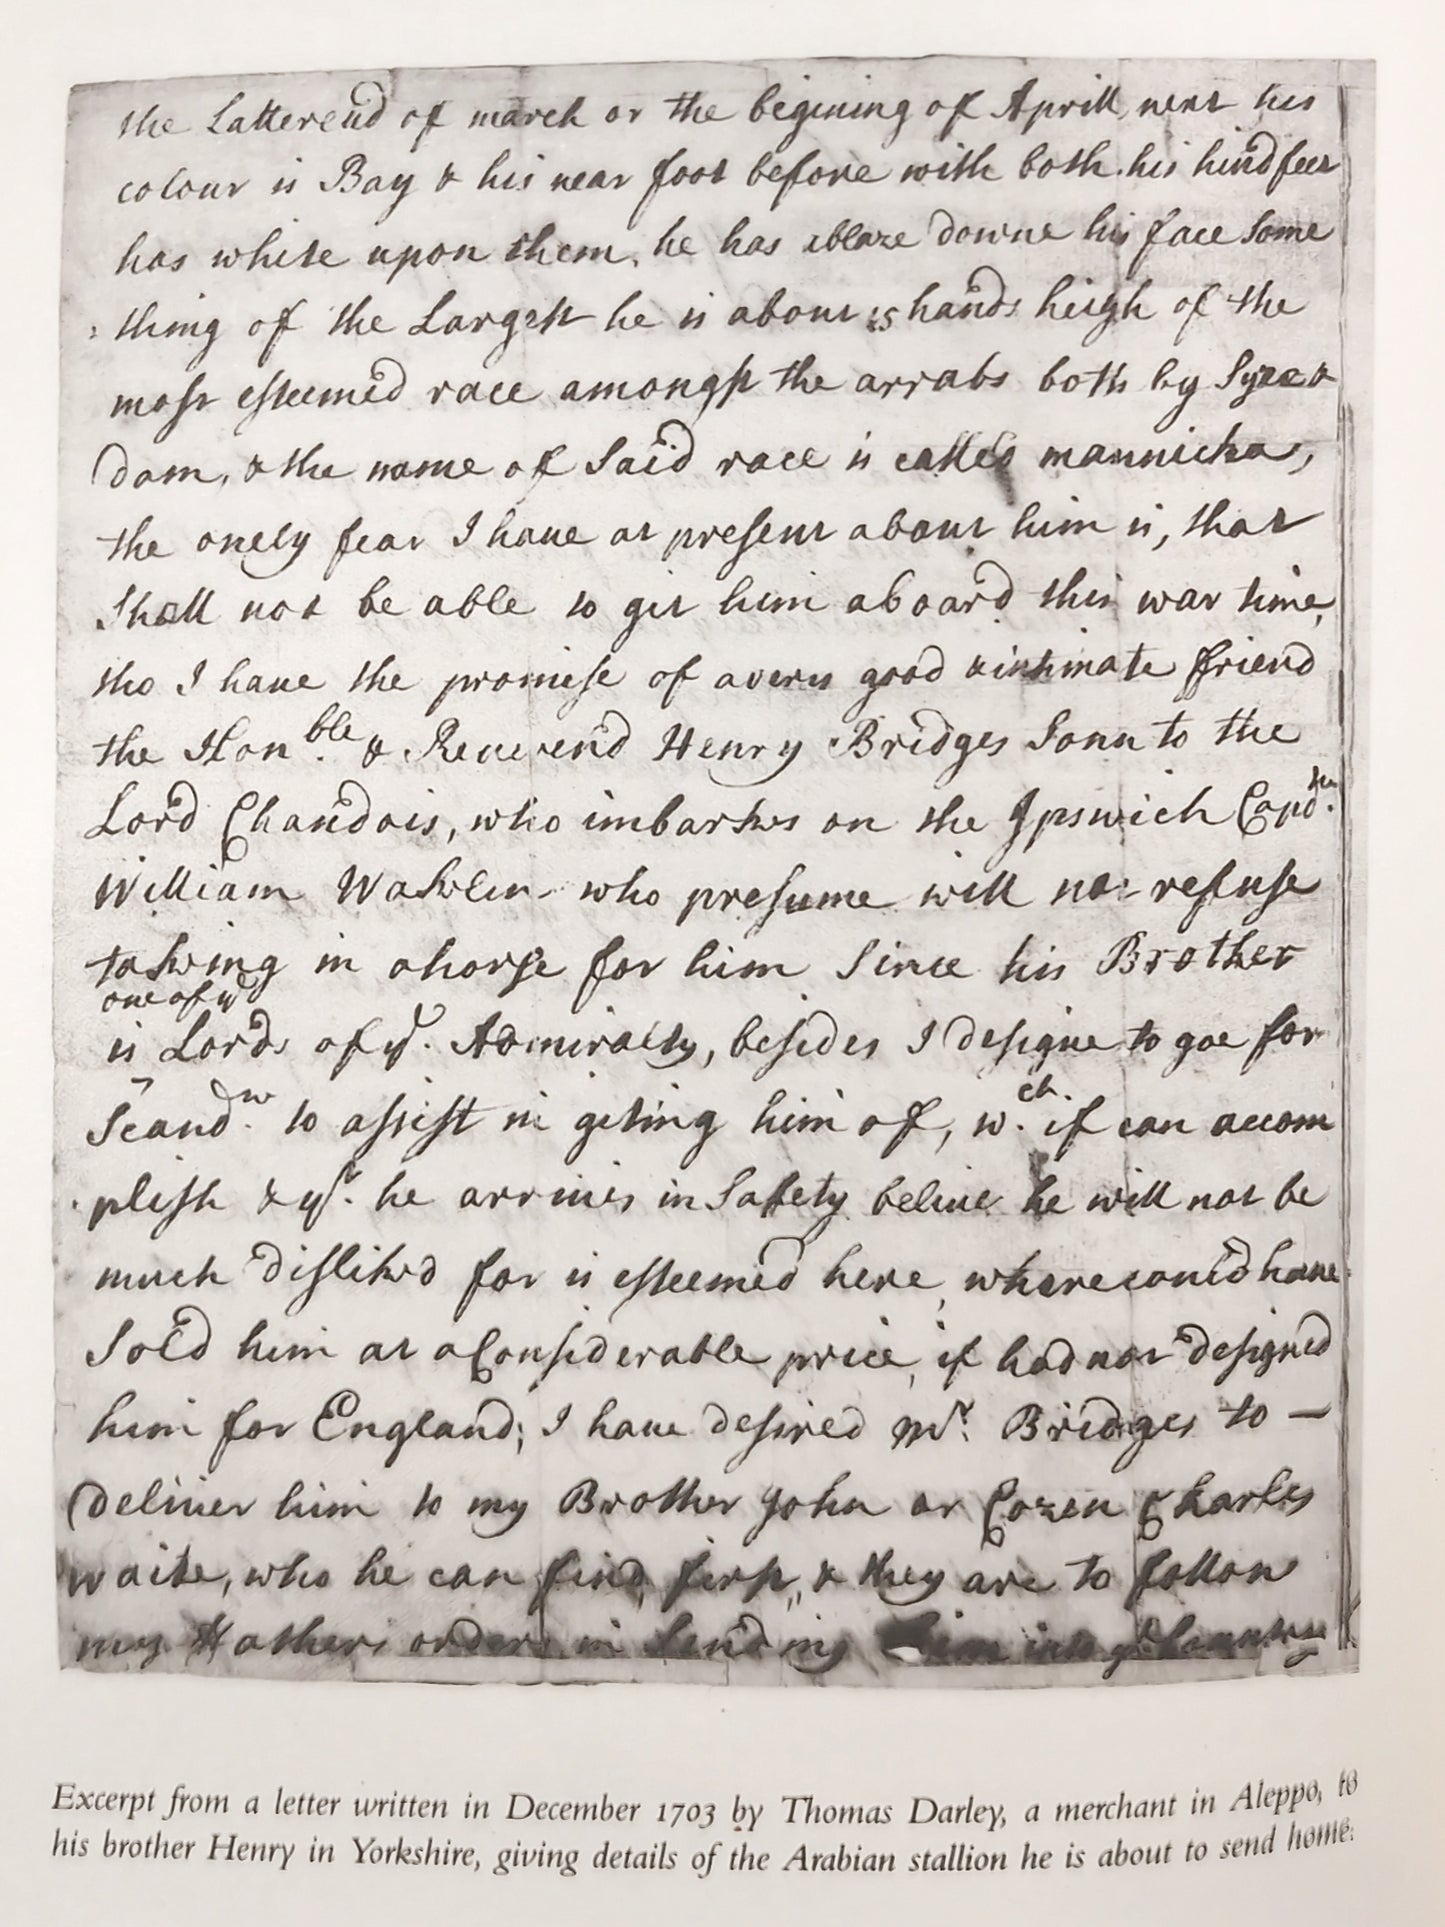 the Latterend of march or the begining of Aprill next his
colour is Bay & his near foot before with both his hind feet
has white upon them, he has a blaze downe his face some
thing of the Largest he is about 15 hands heigh of the
most esteemed race amongst the arrabs both by Syre &
dam, & the name of said race is called mannicka,
the onely fear I have at present about him is, that
shall not be able to git him aboard this war time,
tho I have the promise of a very good & intimate friend
the Hon.ble & Reverend Henry Bridges Sonn to the
Lord Chandois, who imbarkes on the Ipswich Capt.
William Waklin who presume will not refuse
taking in a horse for him since his Brother
one of ye
is Lords of ye. Admiralty, besides I designe to goe for
Scand. to assist in giting him of, w.ch. if can accom
plish & yt. he arrives in Safety belive he will not be
much disliked for is esteemed here, where could have
Sold him at a Considerable price, if had not designed
him for England; I have desired Mr. Bridges to —
deliver him to my Brother John or Cozen Charles
Waite, who he can find, first, & they are to follow
my Fathers orders in sending him into ye Country
Excerpt from a letter written in December 1703 by Thomas Darley, a merchant in Aleppo, to
his brother Henry in Yorkshire, giving details of the Arabian stallion he is about to send home.